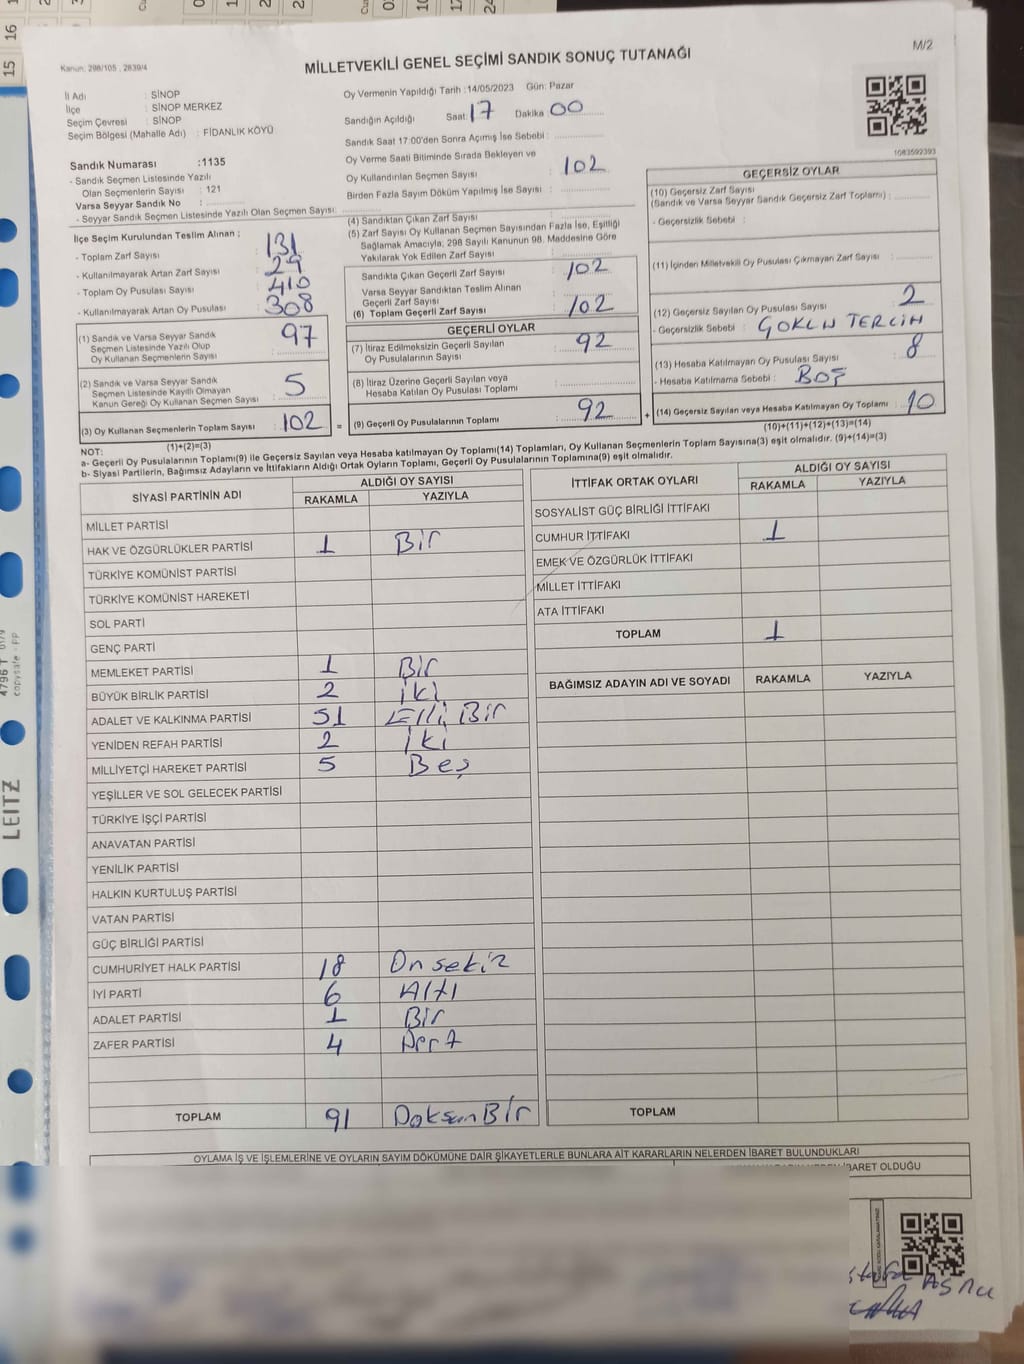 M/2
Kanun: 298/105, 2839/4
MİLLETVEKİLİ GENEL SEÇİMİ SANDIK SONUÇ TUTANAĞI
İl Adı : SİNOP
İlçe : SİNOP MERKEZ
Seçim Çevresi : SİNOP
Seçim Bölgesi (Mahalle Adı) : FİDANLIK KÖYÜ
Sandık Numarası :1135
- Sandık Seçmen Listesinde Yazılı
Olan Seçmenlerin Sayısı : 121
Varsa Seyyar Sandık No :
- Seyyar Sandık Seçmen Listesinde Yazılı Olan Seçmen Sayısı:
Oy Vermenin Yapıldığı Tarih :14/05/2023 Gün: Pazar
Sandığın Açıldığı Saat: 17 Dakika 00
Sandık Saat 17:00'den Sonra Açımış İse Sebebi :
Oy Verme Saati Bitiminde Sırada Bekleyen ve
Oy Kullandırılan Seçmen Sayısı : 102
Birden Fazla Sayım Döküm Yapılmış İse Sayısı :
1083592393
İlçe Seçim Kurulundan Teslim Alınan ;
- Toplam Zarf Sayısı : 131
- Kullanılmayarak Artan Zarf Sayısı : 29
- Toplam Oy Pusulası Sayısı : 410
- Kullanılmayarak Artan Oy Pusulası : 308
(1) Sandık ve Varsa Seyyar Sandık
Seçmen Listesinde Yazılı Olup
Oy Kullanan Seçmenlerin Sayısı : 97
(2) Sandık ve Varsa Seyyar Sandık
Seçmen Listesinde Kayıtlı Olmayan
Kanun Gereği Oy Kullanan Seçmen Sayısı : 5
(3) Oy Kullanan Seçmenlerin Toplam Sayısı : 102
(1)+(2)=(3)
(4) Sandıktan Çıkan Zarf Sayısı
(5) Zarf Sayısı Oy Kullanan Seçmen Sayısından Fazla İse, Eşitliği
Sağlamak Amacıyla; 298 Sayılı Kanunun 98. Maddesine Göre
Yakılarak Yok Edilen Zarf Sayısı :
Sandıkta Çıkan Geçerli Zarf Sayısı : 102
Varsa Seyyar Sandıktan Teslim Alınan
Geçerli Zarf Sayısı
(6) Toplam Geçerli Zarf Sayısı : 102
GEÇERLİ OYLAR
(7) İtiraz Edilmeksizin Geçerli Sayılan
Oy Pusulalarının Sayısı : 92
(8) İtiraz Üzerine Geçerli Sayılan veya
Hesaba Katılan Oy Pusulası Toplamı :
= (9) Geçerli Oy Pusulalarının Toplamı : 92 +
GEÇERSİZ OYLAR
(10) Geçersiz Zarf Sayısı
(Sandık ve Varsa Seyyar Sandık Geçersiz Zarf Toplamı) :
- Geçersizlik Sebebi :
(11) İçinden Milletvekili Oy Pusulası Çıkmayan Zarf Sayısı :
(12) Geçersiz Sayılan Oy Pusulası Sayısı : 2
- Geçersizlik Sebebi : ÇOKLU TERCİH
(13) Hesaba Katılmayan Oy Pusulası Sayısı : 8
- Hesaba Katılmama Sebebi : BOŞ
(14) Geçersiz Sayılan veya Hesaba Katılmayan Oy Toplamı : 10
(10)+(11)+(12)+(13)=(14)
NOT:
a- Geçerli Oy Pusulalarının Toplamı(9) ile Geçersiz Sayılan veya Hesaba katılmayan Oy Toplamı(14) Toplamları, Oy Kullanan Seçmenlerin Toplam Sayısına(3) eşit olmalıdır. (9)+(14)=(3)
b- Siyasi Partilerin, Bağımsız Adayların ve İttifakların Aldığı Ortak Oyların Toplamı, Geçerli Oy Pusulalarının Toplamına(9) eşit olmalıdır.
SİYASİ PARTİNİN ADI ALDIĞI OY SAYISI
RAKAMLA YAZIYLA
MİLLET PARTİSİ
HAK VE ÖZGÜRLÜKLER PARTİSİ 1 Bir
TÜRKİYE KOMÜNİST PARTİSİ
TÜRKİYE KOMÜNİST HAREKETİ
SOL PARTİ
GENÇ PARTİ
MEMLEKET PARTİSİ 1 Bir
BÜYÜK BİRLİK PARTİSİ 2 iki
ADALET VE KALKINMA PARTİSİ 51 Elli Bir
YENİDEN REFAH PARTİSİ 2 iki
MİLLİYETÇİ HAREKET PARTİSİ 5 Beş
YEŞİLLER VE SOL GELECEK PARTİSİ
TÜRKİYE İŞÇİ PARTİSİ
ANAVATAN PARTİSİ
YENİLİK PARTİSİ
HALKIN KURTULUŞ PARTİSİ
VATAN PARTİSİ
GÜÇ BİRLİĞİ PARTİSİ
CUMHURİYET HALK PARTİSİ 18 On sekiz
İYİ PARTİ 6 Altı
ADALET PARTİSİ 1 Bir
ZAFER PARTİSİ 4 Dört
TOPLAM 91 Doksan Bir
İTTİFAK ORTAK OYLARI ALDIĞI OY SAYISI
RAKAMLA YAZIYLA
SOSYALİST GÜÇ BİRLİĞİ İTTİFAKI
CUMHUR İTTİFAKI 1
EMEK VE ÖZGÜRLÜK İTTİFAKI
MİLLET İTTİFAKI
ATA İTTİFAKI
TOPLAM 1
BAĞIMSIZ ADAYIN ADI VE SOYADI RAKAMLA YAZIYLA
TOPLAM
OYLAMA İŞ VE İŞLEMLERİNE VE OYLARIN SAYIM DÖKÜMÜNE DAİR ŞİKAYETLERLE BUNLARA AİT KARARLARIN NELERDEN İBARET BULUNDUKLARI
İBARET OLDUĞU
LEITZ
copysafe - PP
15 16